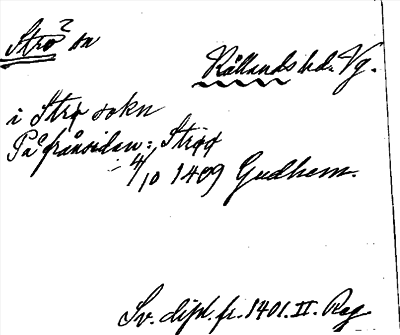 Strö² sn
Kållands hd. Vg.
i Strø sokn
På frånsidan: Strøø
4/10 1409 Gudhem.
Sv. dipl. fr. 1401. II. Reg